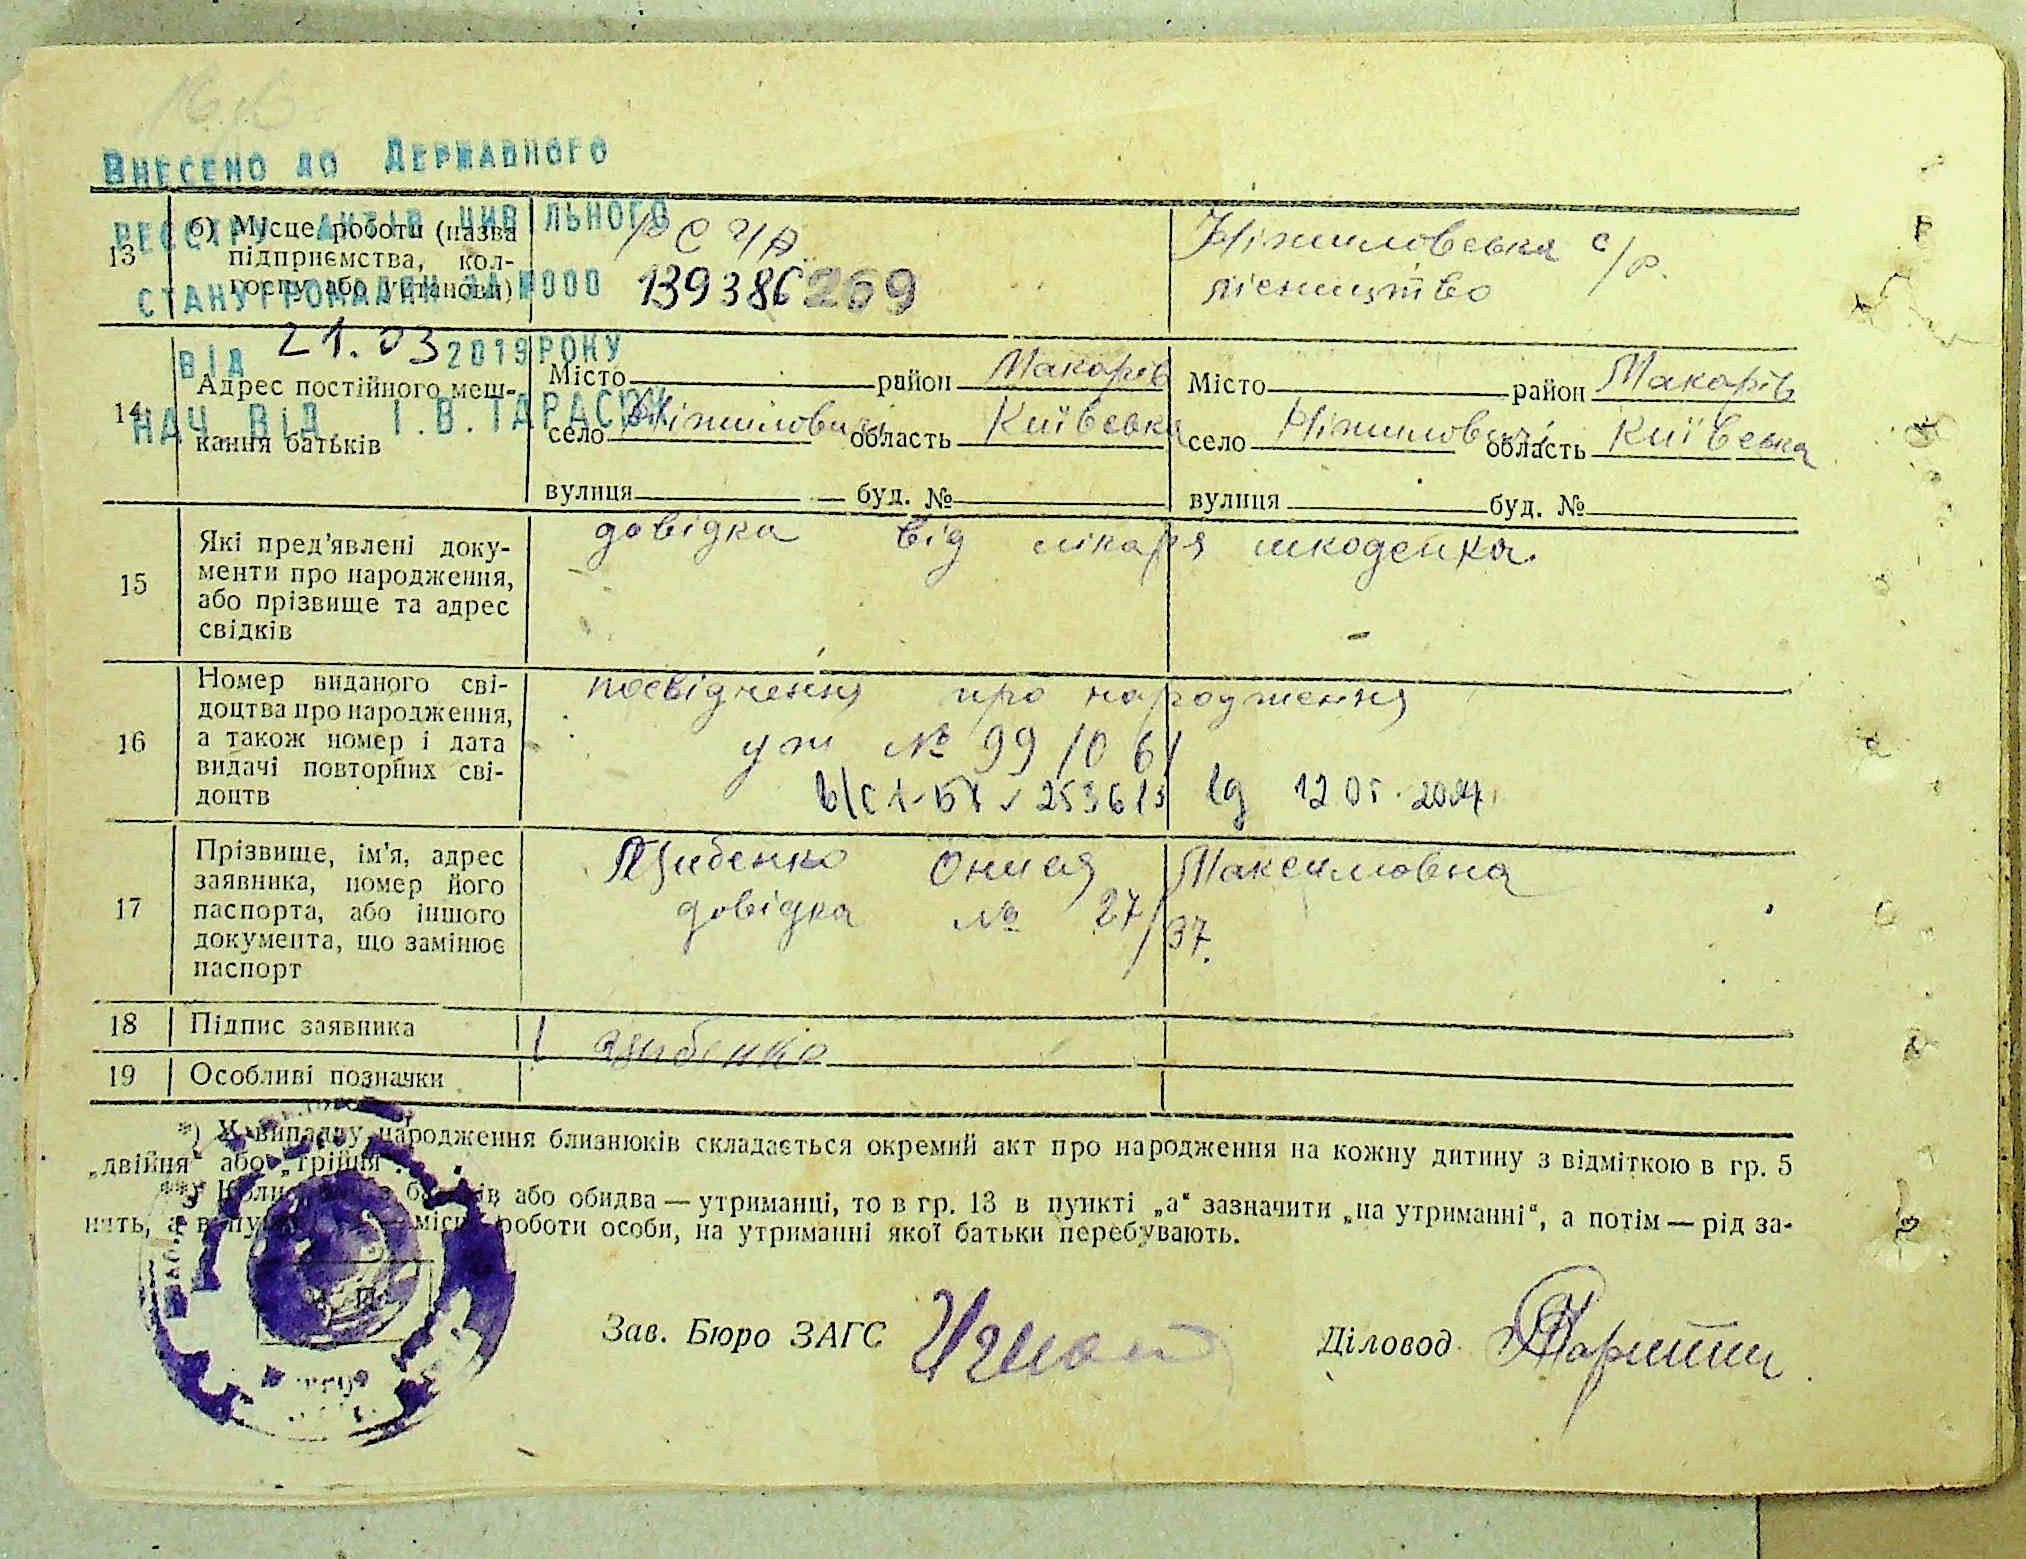 Внесено до Державного
реєстру актів цивільного
стану громадян за №000 139386269
від 21.03 2019 року
нач. від. І.В. Тарасюк
13 б) Місце роботи (назва
підприємства, кол-
госпу або установи)
РСЧА
Ніжиловська с/р.
лісництво
14 Адрес постійного меш-
кання батьків
Місто район Макарів
село Ніжиловичі область Київська
вулиця буд. №
Місто район Макарів
село Ніжиловичі область Київська
вулиця буд. №
15 Які пред'явлені доку-
менти про народження,
або прізвище та адрес
свідків
довідка від лікаря
16 Номер виданого сві-
доцтва про народження,
а також номер і дата
видачі повторних сві-
доцтв
посвідчення про народження
уж № 99/061
12 05
17 Прізвище, ім'я, адрес
заявника, номер його
паспорта, або іншого
документа, що замінює
паспорт
Цибенко Максимовна
довідка № 27/37.
18 Підпис заявника
Цибенко
19 Особливі позначки
*) У випадку народження близнюків складається окремий акт про народження на кожну дитину з відміткою в гр. 5
„двійня“ або „трійня“.
**) Коли батьків або обидва — утриманці, то в гр. 13 в пункті „а“ зазначити „на утриманні“, а потім — рід за-
нять, а в пункті місце роботи особи, на утриманні якої батьки перебувають.
Зав. Бюро ЗАГС
Діловод